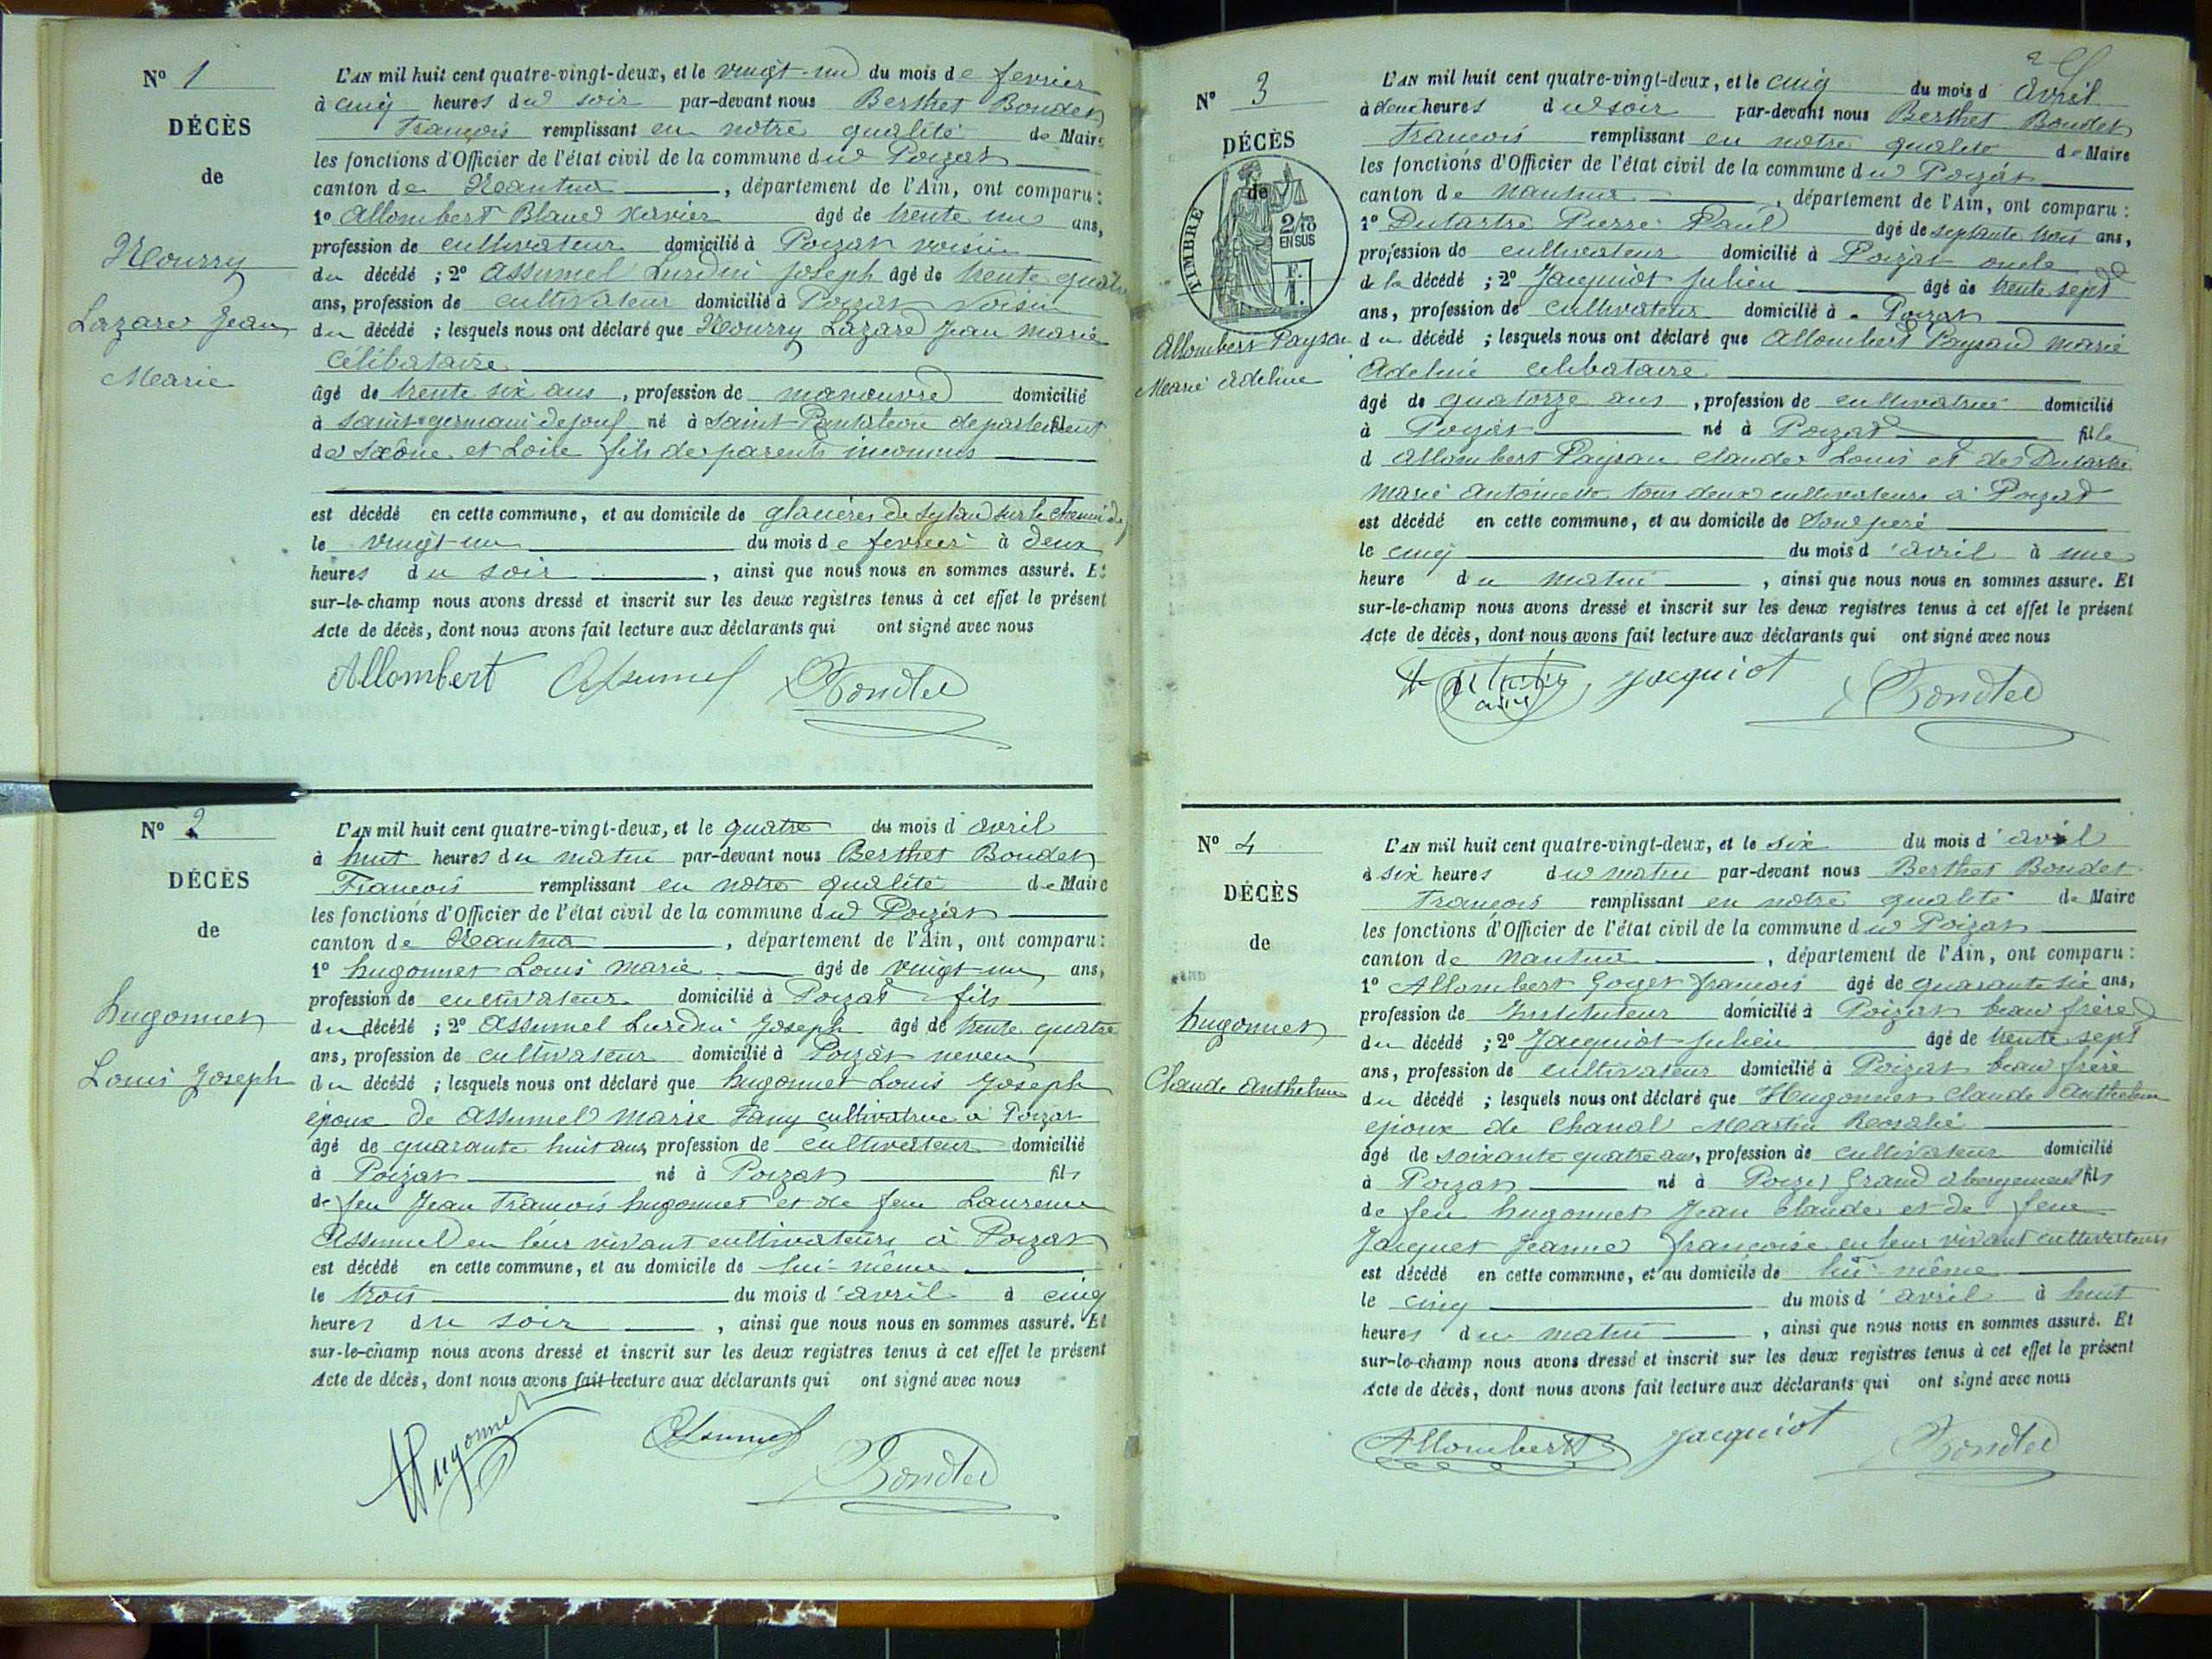 N° 1
DÉCÈS
de
Nourry
Lazare Jean
Marie
L'AN mil huit cent quatre-vingt-deux, et le vingt-un du mois de fevrier
à cinq heures du soir par-devant nous Berthet Bondet
François remplissant en notre qualité de Maire
les fonctions d'Officier de l'état civil de la commune du Poizat
canton de Nantua, département de l'Ain, ont comparu :
1° Allombert Blanc Xavier âgé de trente un ans,
profession de cultivateur domicilié à Poizat voisin
du décédé ; 2° Assumel Lurdin Joseph âgé de trente quatre
ans, profession de cultivateur domicilié à Poizat voisin
du décédé ; lesquels nous ont déclaré que Nourry Lazare Jean Marie
célibataire
âgé de trente six ans, profession de manoeuvre domicilié
à Saint-germain de joux né à Saint Pantaleon departement
de Saône et Loire fils de parents inconnus
est décédé en cette commune, et au domicile de glacières de Sylan sur le chemin de
le vingt-un du mois de fevrier à deux
heures du soir, ainsi que nous nous en sommes assuré. Et
sur-le-champ nous avons dressé et inscrit sur les deux registres tenus à cet effet le présent
Acte de décès, dont nous avons fait lecture aux déclarants qui ont signé avec nous
Allombert Assumel Bondet
N° 2
DÉCÈS
de
hugonnet
Louis Joseph
L'AN mil huit cent quatre-vingt-deux, et le quatre du mois d'avril
à huit heures du matin par-devant nous Berthet Bondet
François remplissant en notre qualité de Maire
les fonctions d'Officier de l'état civil de la commune du Poizat
canton de Nantua, département de l'Ain, ont comparu :
1° hugonnet Louis marie âgé de vingt-un ans,
profession de cultivateur domicilié à Poizat fils
du décédé ; 2° Assumel Lurdin Joseph âgé de trente quatre
ans, profession de cultivateur domicilié à Poizat neveu
du décédé ; lesquels nous ont déclaré que hugonnet Louis Joseph
époux de Assumel Marie Fany cultivatrice à Poizat
âgé de quarante huit ans, profession de cultivateur domicilié
à Poizat né à Poizat fils
de feu Jean François hugonnet et de feue Laurence
Assumel en leur vivant cultivateurs à Poizat
est décédé en cette commune, et au domicile de lui-même
le trois du mois d'avril à cinq
heures du soir, ainsi que nous nous en sommes assuré. Et
sur-le-champ nous avons dressé et inscrit sur les deux registres tenus à cet effet le présent
Acte de décès, dont nous avons fait lecture aux déclarants qui ont signé avec nous
Hugonnet Assumel Bondet
N° 3
DÉCÈS
de
TIMBRE
2/10
EN SUS
F.
1.
Allombert Paysan
Marie Adeline
L'AN mil huit cent quatre-vingt-deux, et le cinq du mois d'Avril
à deux heures du soir par-devant nous Berthet Bondet
François remplissant en notre qualité de Maire
les fonctions d'Officier de l'état civil de la commune du Poizat
canton de Nantua, département de l'Ain, ont comparu :
1° Dutartre Pierre Paul âgé de septante trois ans,
profession de cultivateur domicilié à Poizat oncle
de la décédé ; 2° Jacquiot Julien âgé de trente sept
ans, profession de cultivateur domicilié à Poizat
du décédé ; lesquels nous ont déclaré que Allombert Paysan Marie
Adeline celibataire
âgé de quatorze ans, profession de cultivatrice domicilié
à Poizat né à Poizat fille
d Allombert Paysan Claude Louis et de Dutartre
Marie Antoinette tous deux cultivateurs à Poizat
est décédé en cette commune, et au domicile de son père
le cinq du mois d'avril à une
heure du matin, ainsi que nous nous en sommes assuré. Et
sur-le-champ nous avons dressé et inscrit sur les deux registres tenus à cet effet le présent
Acte de décès, dont nous avons fait lecture aux déclarants qui ont signé avec nous
jacquiot Bondet
N° 4
DÉCÈS
de
hugonnet
Claude Anthelme
L'AN mil huit cent quatre-vingt-deux, et le six du mois d'avril
à six heures du matin par-devant nous Berthet Bondet
François remplissant en notre qualité de Maire
les fonctions d'Officier de l'état civil de la commune du Poizat
canton de Nantua, département de l'Ain, ont comparu :
1° Allombert Goget François âgé de quarante six ans,
profession de Instituteur domicilié à Poizat beau frère
du décédé ; 2° Jacquiot Julien âgé de trente sept
ans, profession de cultivateur domicilié à Poizat beau frère
du décédé ; lesquels nous ont déclaré que Hugonnet Claude Anthelme
epoux de Chanal Martin Rosalie
âgé de soixante quatre ans, profession de cultivateur domicilié
à Poizat né à Grand abergement fils
de feu hugonnet Jean Claude et de feue
Jacquet Jeanne françoise en leur vivant cultivateurs
est décédé en cette commune, et au domicile de lui même
le cinq du mois d'avril à huit
heures du matin, ainsi que nous nous en sommes assuré. Et
sur-le-champ nous avons dressé et inscrit sur les deux registres tenus à cet effet le présent
Acte de décès, dont nous avons fait lecture aux déclarants qui ont signé avec nous
Allombert jacquiot Bondet